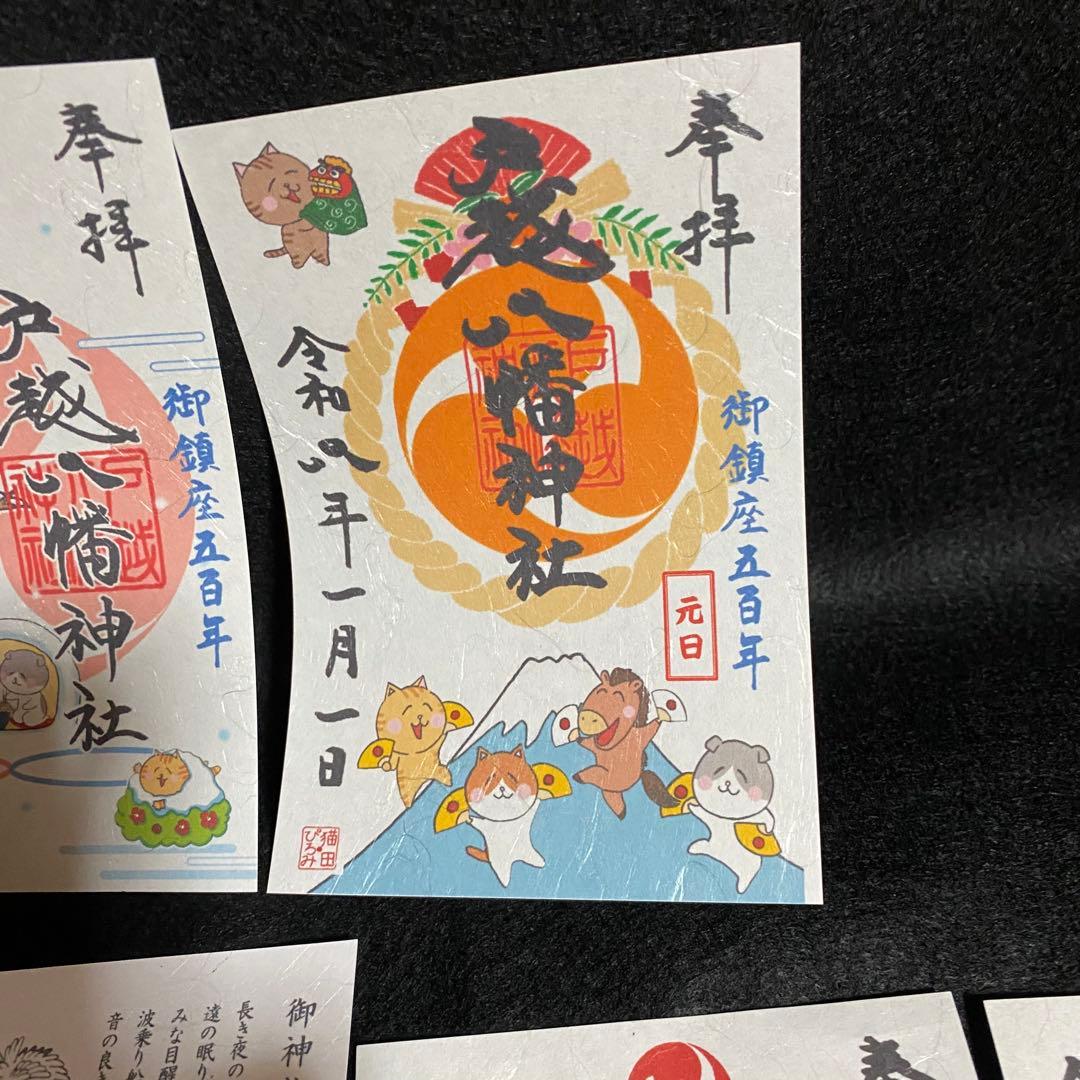 奉拝
戸越八幡神社
戸越八幡神社
御鎮座五百年
奉拝
戸越八幡神社
戸越八幡神社
御鎮座五百年
元日
令和八年一月一日
猫田
ぴろみ
長き夜の
遠の眠り
みな目醒
波乗り
音の良き